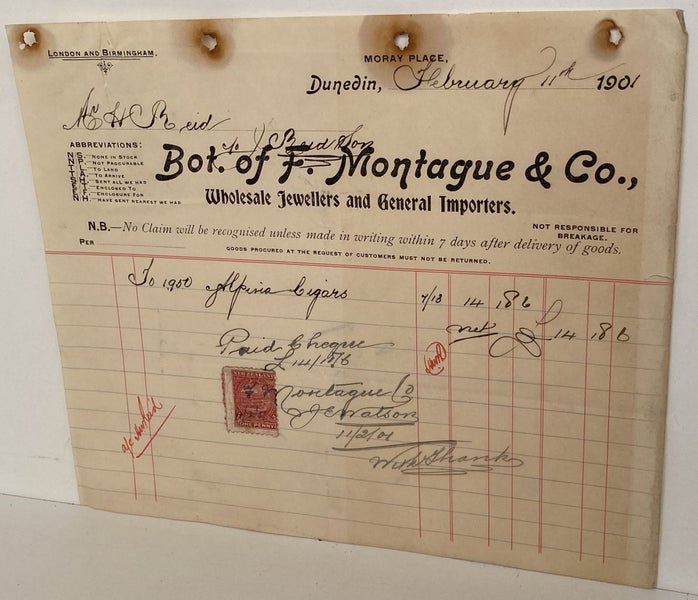 LONDON AND BIRMINGHAM.
MORAY PLACE,
Dunedin, February 11th 1901
Mr H Reid
to J Reid & Son
ABBREVIATIONS:
N S.—NONE IN STOCK
N P.—NOT PROCURABLE
T L.—TO LAND
T A.—TO ARRIVE
S H.—SENT ALL WE HAD
E T.—ENCLOSED TO
E F.—ENCLOSURE FOR
N H.—HAVE SENT NEAREST WE HAD
Bot. of F. Montague & Co.,
Wholesale Jewellers and General Importers.
NOT RESPONSIBLE FOR BREAKAGE.
N.B.—No Claim will be recognised unless made in writing within 7 days after delivery of goods.
PER
GOODS PROCURED AT THE REQUEST OF CUSTOMERS MUST NOT BE RETURNED.
To 1950 Alpina Cigars 7/13 14 18 6
net £ 14 18 6
Paid Cheque
£14/18/6
NEW ZEALAND
F Montague Co
J E Watson
ONE PENNY
11/2/01
With Thanks